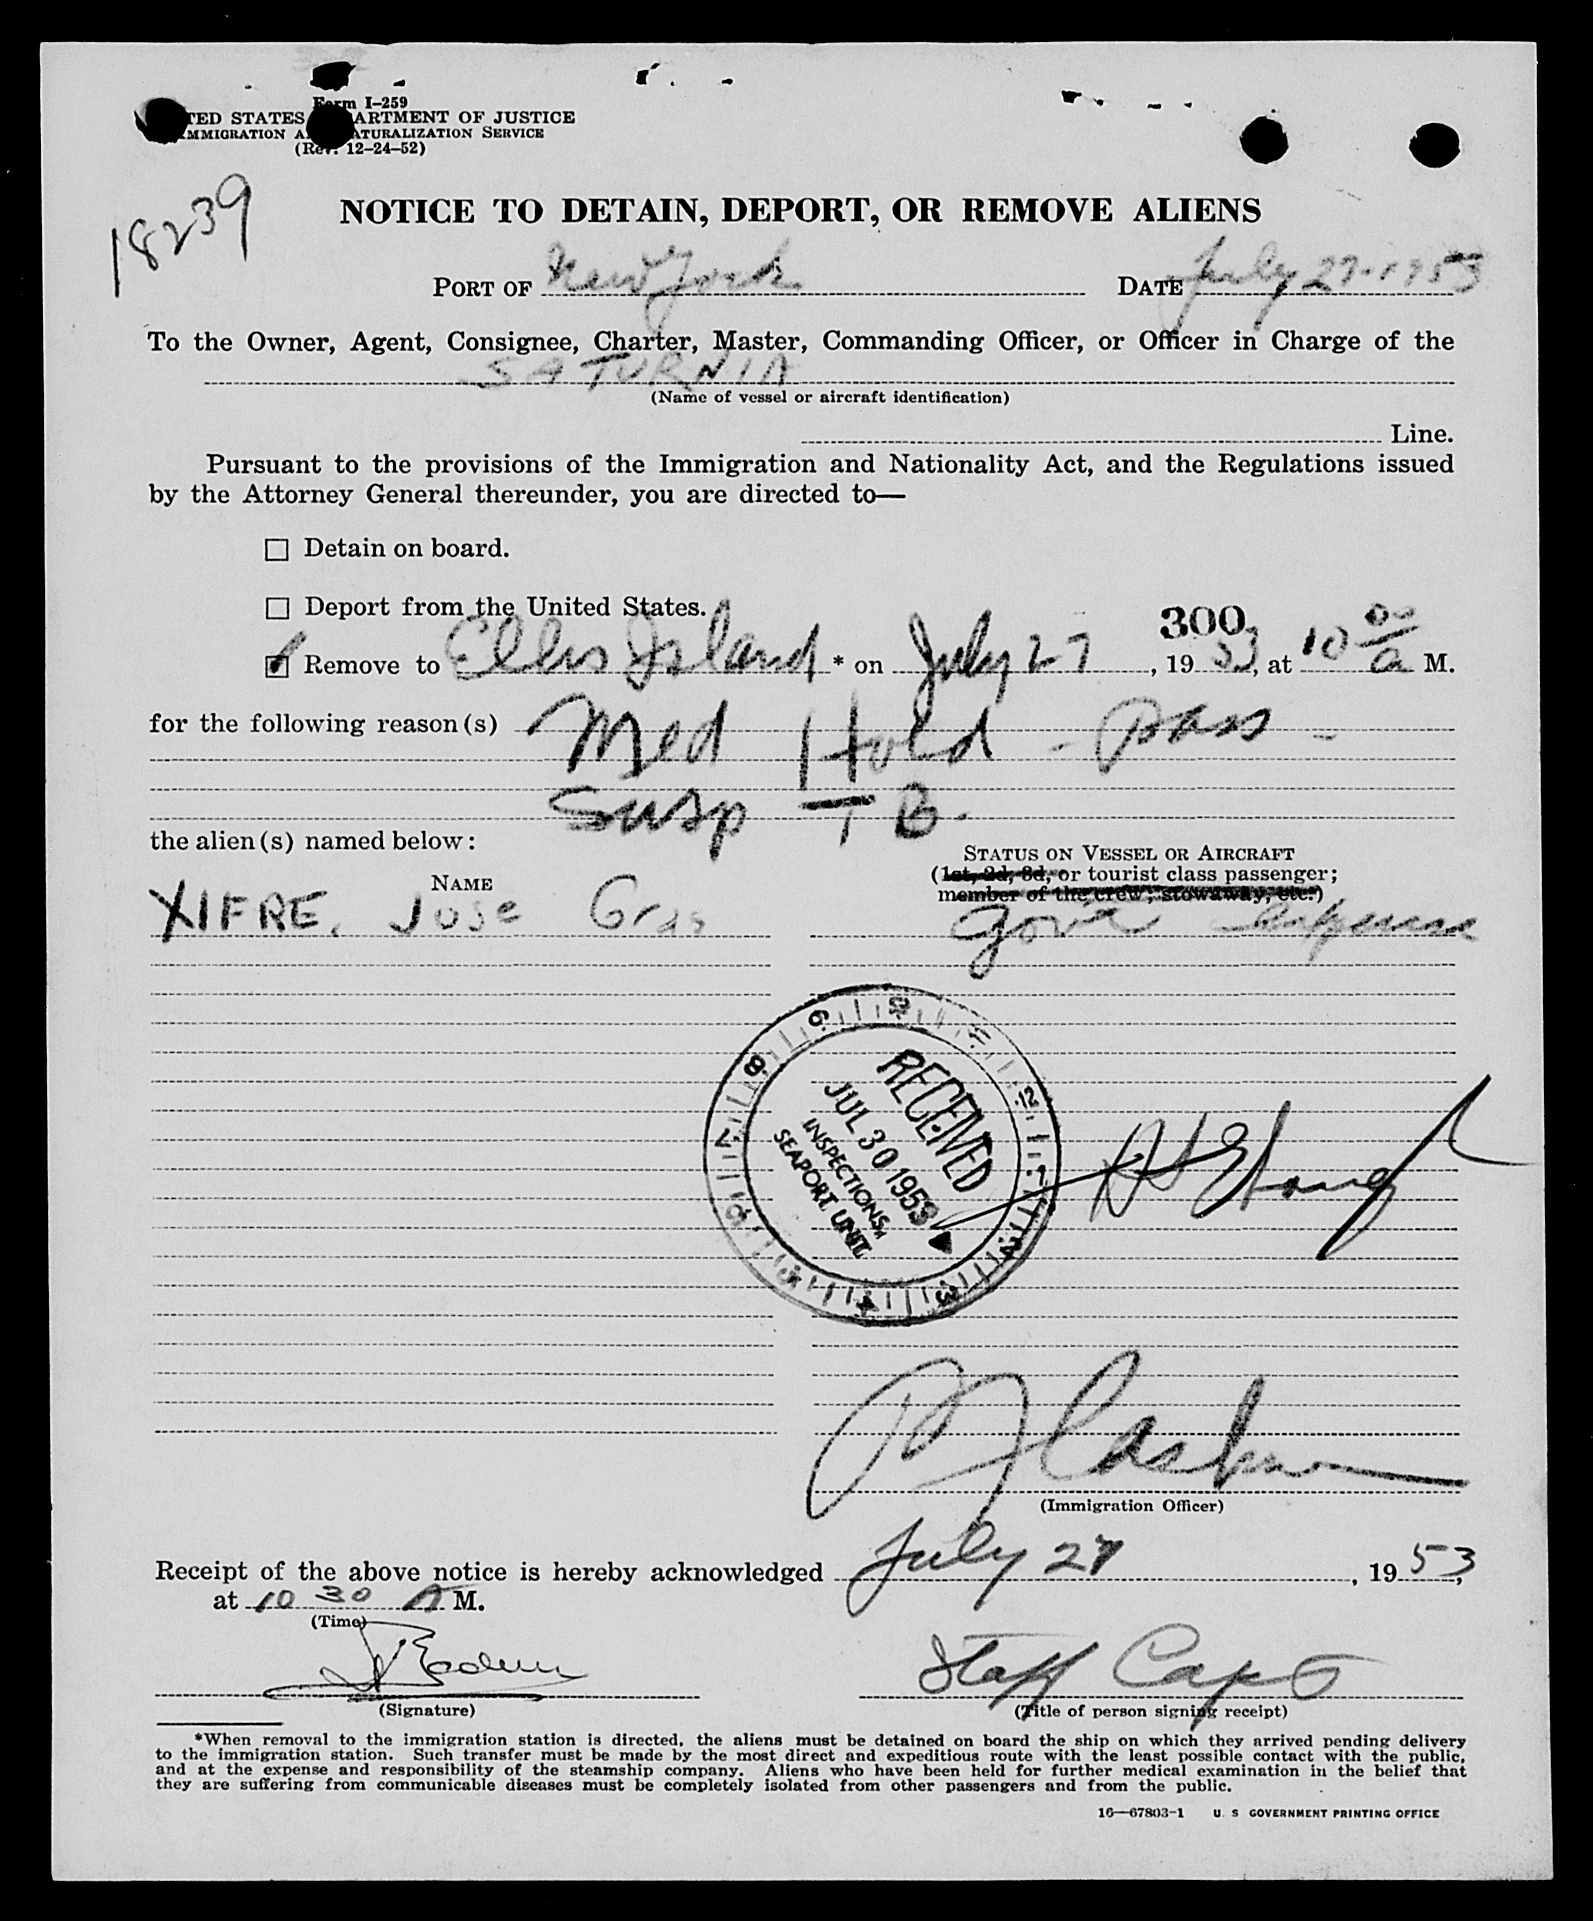 Form I-259
UNITED STATES DEPARTMENT OF JUSTICE
IMMIGRATION AND NATURALIZATION SERVICE
(Rev. 12-24-52)
18239
NOTICE TO DETAIN, DEPORT, OR REMOVE ALIENS
PORT OF New York DATE July 27-1953
To the Owner, Agent, Consignee, Charter, Master, Commanding Officer, or Officer in Charge of the
SATURNIA
(Name of vessel or aircraft identification)
Line.
Pursuant to the provisions of the Immigration and Nationality Act, and the Regulations issued
by the Attorney General thereunder, you are directed to—
Detain on board.
Deport from the United States.
300
Remove to Ellis Island * on July 27, 1953, at 10 00 a M.
for the following reason(s) Med Hold - pass -
Susp TB.
the alien(s) named below:
STATUS ON VESSEL OR AIRCRAFT
(1st, 2d, 3d, or tourist class passenger;
member of the crew; stowaway, etc.)
NAME
XIFRE, Jose Gras Govt expense
RECEIVED
JUL 30 1953
INSPECTIONS
SEAPORT UNIT
(Immigration Officer)
Receipt of the above notice is hereby acknowledged July 27, 1953,
at 10 30 A M.
(Time)
Staff Capt
(Signature) (Title of person signing receipt)
*When removal to the immigration station is directed, the aliens must be detained on board the ship on which they arrived pending delivery
to the immigration station. Such transfer must be made by the most direct and expeditious route with the least possible contact with the public,
and at the expense and responsibility of the steamship company. Aliens who have been held for further medical examination in the belief that
they are suffering from communicable diseases must be completely isolated from other passengers and from the public.
16—67803-1 U. S GOVERNMENT PRINTING OFFICE